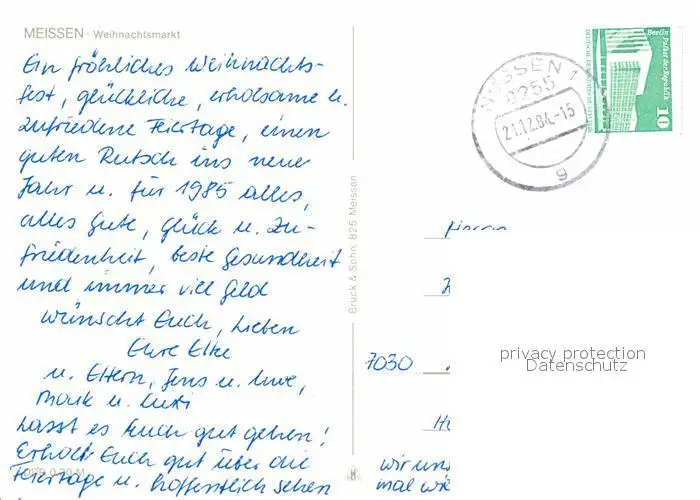 MEISSEN · Weihnachtsmarkt
Ein fröhliches Weihnachts-
fest, glückliche, erholsame u.
zufriedene Feiertage, einen
guten Rutsch ins neue
Jahr u. für 1985 alles,
alles Gute, Glück u. Zu-
friedenheit, beste Gesundheit
und immer viel Geld
wünscht Euch, Lieben
Eure Elke
u. Eltern, Jens u. Uwe,
Maik u.
Lasst es Euch gut gehen!
Erholt Euch gut über die
Feiertage u. hoffentlich sehen
wir uns
mal
Bruck & Sohn, 825 Meissen
MEISSEN 1
8255
21.12.84.-15
g
Berlin, Palast der Republik
10
7030
privacy protection
Datenschutz